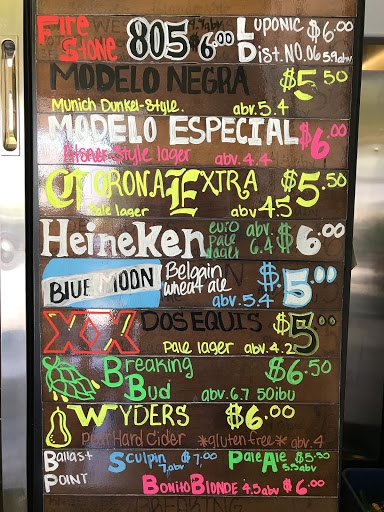 Fire Stone 805 6.00 Luponic Dist. No. 06 5.9abv $6.00
MODELO NEGRA $5.50
Munich Dunkel-Style. abv. 5.4
MODELO ESPECIAL $6.00
Pilsner-Style lager abv. 4.4
Corona Extra $5.50
Pale lager abv 4.5
Heineken euro pale lager abv. 6.4 $6.00
BLUE MOON Belgain wheat ale abv. 5.4 $5.00
XX DOS EQUIS $5.00
Pale lager abv. 4.2
Breaking Bud $6.50
abv. 6.7 50ibu
WYDERS $6.00
Pear Hard Cider *gluten free* abv. 4
Ballast Point Sculpin 7.abv $7.00 Pale Ale 5.5abv $5.50
Bonito Blonde 4.5abv $6.00